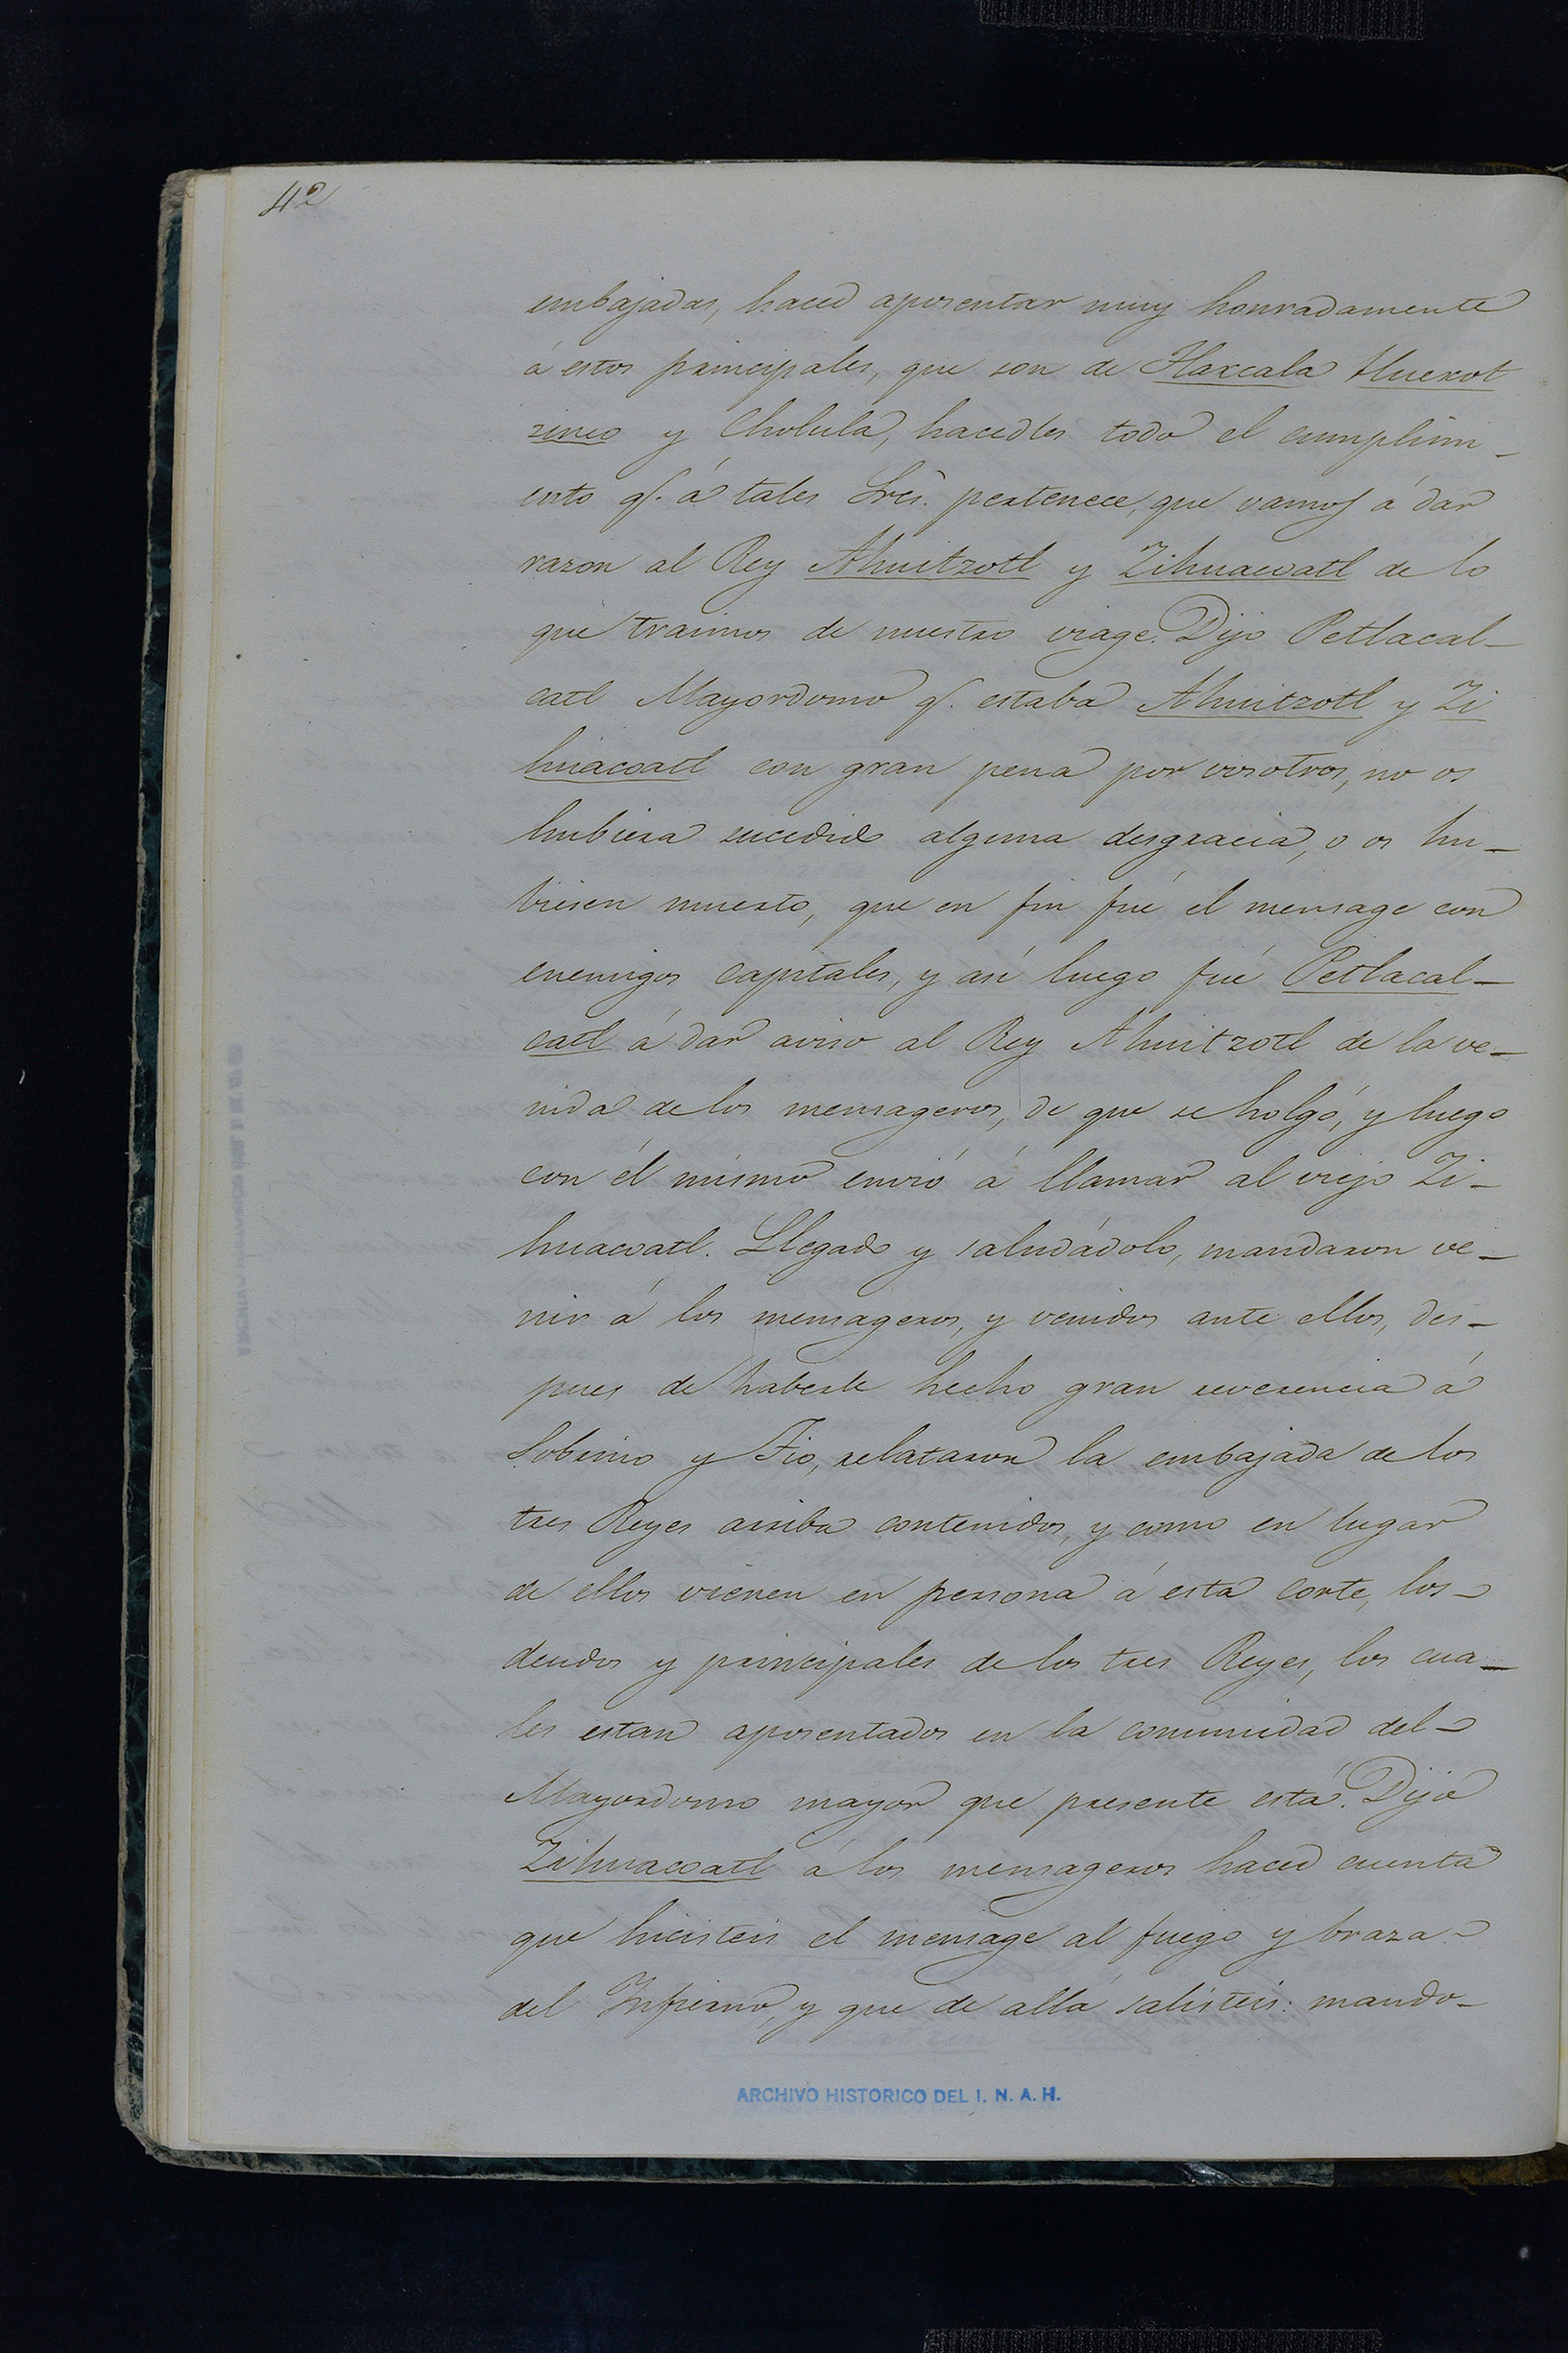 42
embajadas, haced aposentar muy honradamente
á estos principales, que son de Tlaxcala Huexot
zinco y Cholula, hacedles todo el cumplimi-
ento q. á tales Sres. pertenece, que vamos á dar
razon al Rey Ahuitzotl y Zihuacoatl de lo
que traimos de nuestro viage. Dijo Petlacal-
catl Mayordomo q. estaba Ahuitzotl y Zi
huacoatl con gran pena por vosotros, no os
hubiera sucedido alguna desgracia, o os hu-
biesen muerto, que en fin fué el mensage con
enemigos capitales, y asi luego fué Petlacal-
catl á dar aviso al Rey Ahuitzotl de la ve-
nida de los mensageros, de que se holgó, y luego
con él mismo envió á llamar al viejo Zi-
huacoatl. Llegado y saludádolo, mandaron ve-
nir á los mensageros, y venidos ante ellos, des-
pues de haberle hecho gran reverencia á
Sobrino y Tio, relataron la embajada de los
tres Reyes arriba contenidos, y como en lugar
de ellos vienen en persona á esta corte, los-
deudos y principales de los tres Reyes, los cua-
les estan aposentados en la comunidad del-
Mayordomo mayor que presente está. Dijo
Zihuacoatl á los mensageros haced cuenta
que hicisteis el mensage al fuego y braza-
del Infierno, y que de allá salisteis: mando-
ARCHIVO HISTORICO DEL I. N. A. H.